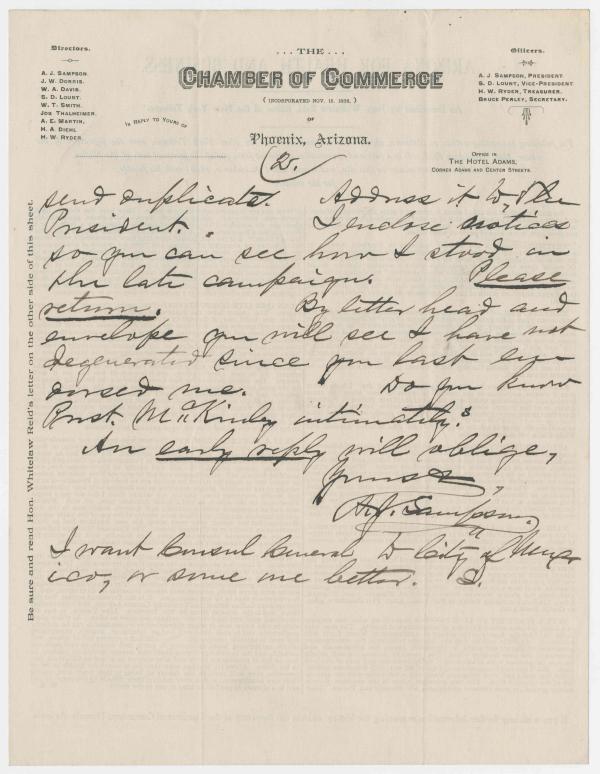 Directors.
A. J. Sampson.
J. W. Dorris.
W. A. Davis.
S. D. Lount.
W. T. Smith.
Jos Thalheimer.
A. E. Martin.
H. A. Diehl.
H. W. Ryder.
... THE ...
CHAMBER OF COMMERCE
OF
Phoenix, Arizona.
In Reply to Yours of
Officers.
A. J. Sampson, President.
S. D. Lount, Vice-President.
H. W. Ryder, Treasurer.
Bruce Perley, Secretary.
Office in
The Hotel Adams,
Corner Adams and Center Streets.
(2.
send duplicate. Address it to, The
President. I enclose notices
so you can see how I stood in
the late campaign. Please
return. By letter head and
envelope you will see I have not
degenerated since you last en-
dorsed me. Do you know
Prest. McKinley intimately?
An early reply will oblige,
Yours,
A. J. Sampson.
I want Consul General to City of Mex
ico, or some one better. S.
Be sure and read Hon. Whitelaw Reid's letter on the other side of this sheet.